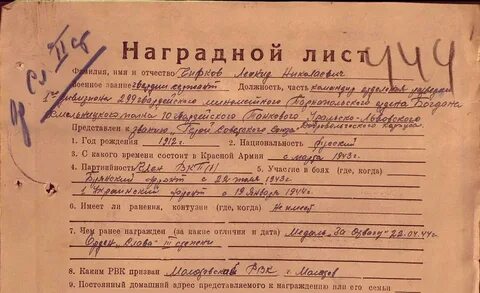 Сл. II ст
444
Наградной лист
Фамилия, имя и отчество Чирков Леонид Николаевич
Военное звание гвардии сержант Должность, часть командир отделения разведки
1го дивизиона 299 гвардейского минометного Тарнопольского ордена Богдана
Хмельницкого полка 10 гвардейского Танкового Уральско-Львовского
Добровольческого Корпуса.
Представлен к званию "Герой Советского Союза"
1. Год рождения 1912 г. 2. Национальность русский
3. С какого времени состоит в Красной Армии с марта 1943 г.
4. Партийность Член ВКП/б/ 5. Участие в боях (где, когда)
Брянский фронт с 22 июля 1943 г.
1 Украинский фронт с 19 Января 1944 г.
6. Имеет ли ранения, контузии (где, когда) Не имеет
7. Чем ранее награжден (за какие отличия и дата) Медаль "За Отвагу" 22.04.44 г.
Орден "Слава" III степени
8. Каким РВК призван РВК г.
9. Постоянный домашний адрес представляемого к награждению или его семьи